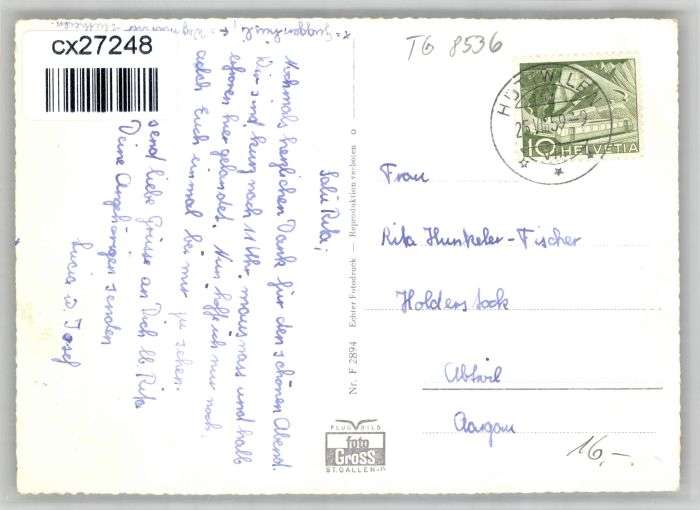 cx27248
TG 8536
HELVETIA
10
Salü Rita,
Nochmals herzlichen Dank für den schönen Abend.
Wir sind kurz nach 11 Uhr und halb
erfroren hier gelandet. Nun hoffe ich nur noch,
auch Euch einmal bei mir zu sehen.
send liebe Grüsse an Dich lb. Rita
Deine Angehörigen senden
Lucia u. Josef
Nr. F 2894 Echter Fotodruck — Reproduktion verboten
FLUGBILD
foto
Gross
ST. GALLEN
Frau
Rita Hunkeler-Fischer
Holderstock
Abtwil
Aargau
16,-